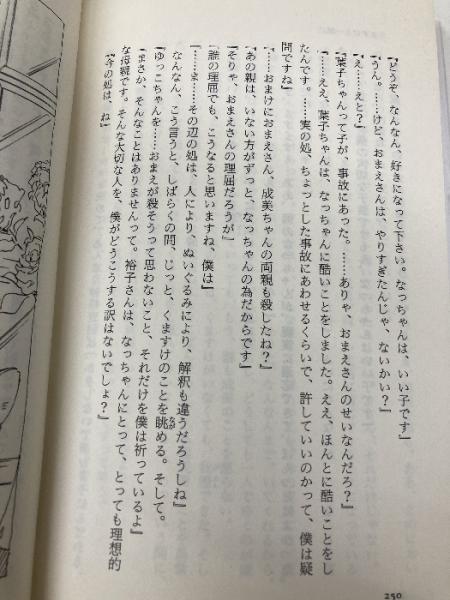 『どうぞ、なんなん、好きになって下さい。なっちゃんは、いい子です』
『うん。……けど、おまえさんは、やりすぎたんじゃ、ないかい？』
『え……えと？』
『葉子ちゃんって子が、事故にあった。……ありゃ、おまえさんのせいなんだろ？』
『……ええ、葉子ちゃんは、なっちゃんに酷いことをしました。ええ、ほんとに酷いことをし
たんです。……実の処、ちょっとした事故にあわせるくらいで、許していいのかって、僕は疑
問ですね』
『……おまけにおまえさん、成美ちゃんの両親も殺したね？』
『あの親は、いない方がずっと、なっちゃんの為だからです』
『そりゃ、おまえさんの理屈だろうが』
『誰の理屈でも、こうなると思いますね、僕は』
『……ま……その辺の処は、人により、ぬいぐるみにより、解釈も違うだろうしね』
なんなん、こう言うと、しばらくの間、じっと、くますけのことを眺める。そして。
なが
『ゆっこちゃんを……おまえが殺そうって思わないこと、それだけを僕は祈っているよ』
『まさか、そんなことはありませんって。裕子さんは、なっちゃんにとって、とっても理想的
な母親です。そんな大切な人を、僕がどうこうする訳はないでしょ？』
『今の処は、ね』
250